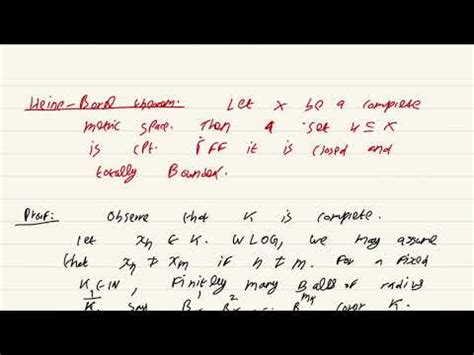 Heine-Borel theorem. Let X be a complete
metric space. Then a set K ⊆ X
is cpt. iff it is closed and
totally Bounded.
Proof: Observe that K is complete.
Let xn ∈ K. WLOG, we may assume
that xn ≠ xm if n ≠ m. For a fixed
K1 ∈ N, Finitely many Balls of radius
1/K1 say cover K.